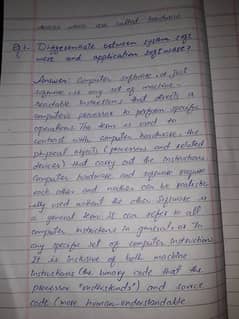 which are called hardware
Q1- Differentiate between system soft
ware and application software?
Answer: Computer software or just
software is any set of machine-
readable instructions that directs a
computer's processor to perform specific
operations. The term is used to
contrast with computer hardware, the
physical objects (processors and related
devices) that carry out the instructions.
Computer hardware and software require
each other and neither can be realistic-
ally used without the other. Software is
a general term. It can refer to all
computer instructions in general or to
any specific set of computer instructions.
It is inclusive of both machine
instructions (the binary code that the
processor "understands") and source
code (more human-understandable